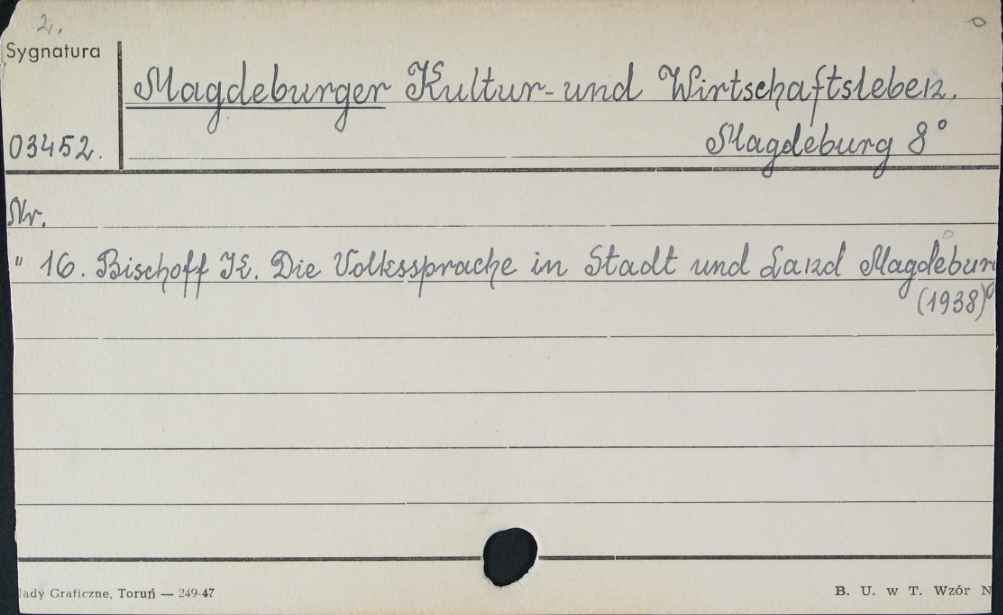 2.
Sygnatura
Magdeburger Kultur- und Wirtschaftsleben.
03452.
Magdeburg 8°
Nr.
" 16. Bischoff K. Die Volkssprache in Stadt und Land Magdeburg
(1938)
Graficzne, Toruń — 249-47
B. U. w T. Wzór N